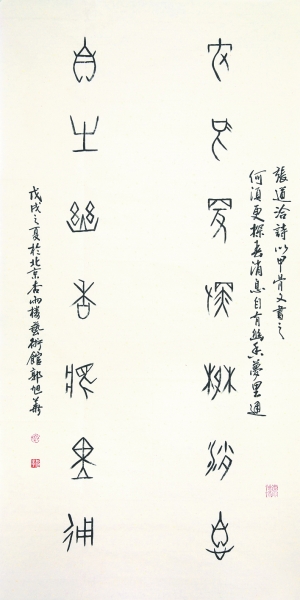 張道洽詩以甲骨文書之
何須更探春消息自有幽香夢里通
何須更探春消息
自有幽香夢里通
戊戌之夏於北京杏雨樓藝術館郭旭華